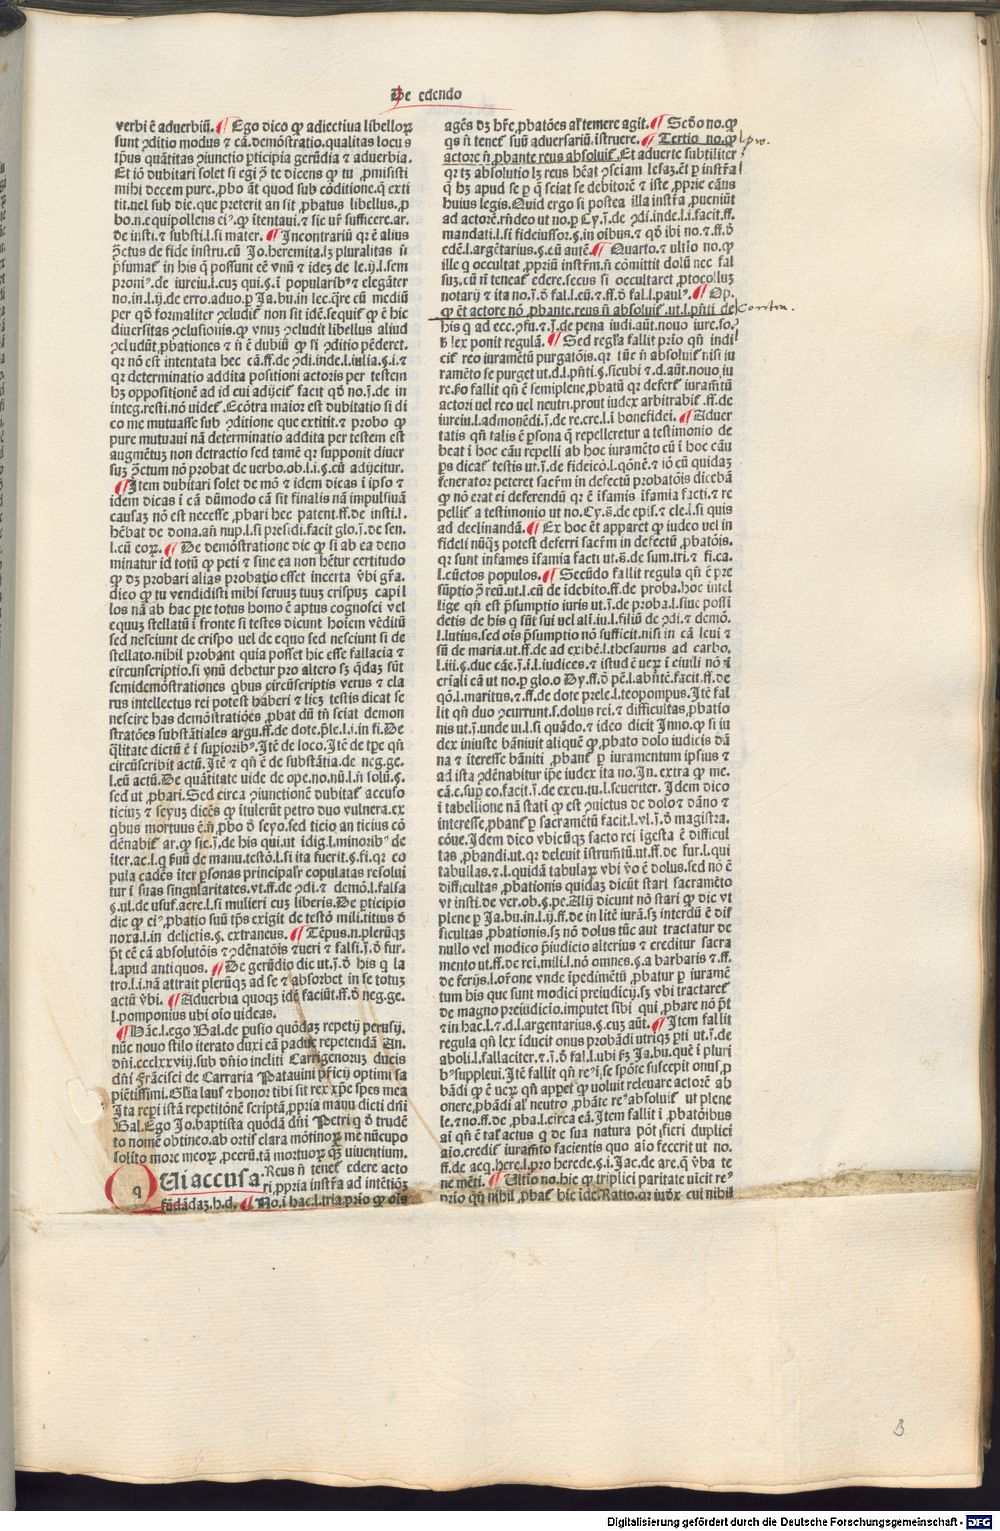 De edendo
verbi ē aduerbiū. ¶ Ego dico ꝙ adiectiua libelloꝝ
sunt ꝯditio modus ⁊ cā. demōstratio. qualitas locus
tp̄us quātitas ꝯiunctio p̱ticipia gerūdia ⁊ aduerbia.
Et iō dubitari solet si egi ꝯ̄ te dicens ꝙ tu ꝓmisisti
mihi decem pure. ꝓbo āt quod sub cōditione. q̄ exti
tit. uel sub die. que preterit an sit ꝓbatus libellus. ꝓ
bo. n. equipollens eiꝰ. ꝙ ītentaui. ⁊ sic ur̄ sufficere. ar.
de insti. ⁊ substi. l. si mater. ¶ Incontrariū qr ē alius
de fide instru. cū Jo. heremita. lꝫ pluralitas ī
p̄sumat̄ in his q̄ possunt eē vnū ⁊ idez de le. ij. l. sem
proniꝰ. de iureiu. l. cuz qui. §. ī popularibꝰ ⁊ elegāter
no. in. l. ij. de erro. aduo. ꝑ Ja. bu. in lec. q̄re cū mediū
per qd̄ formaliter ꝯcludit̄ non sit idē. sequit̄ ꝙ ē hic
diuersitas ꝯclusionis. ꝙ vnuz ꝯcludit libellus aliud
ꝯcludūt ꝓbationes ⁊ iī ē dubiū ꝙ si ꝯditio pēderet.
qr nō est intentata hec cā. ff. de ꝯdi. inde. l. iulia. §. i. ⁊
qr determinatio addita positioni actoris per testem
hꝫ oppositionē ad id cui adijcit̄ facit qd̄ no. ī. de in
integ. resti. nō uidet̄. Ecōtra maior est dubitatio si di
co me mutuasse sub ꝯditione que extitit. ⁊ probo ꝙ
pure mutuaui nā determinatio addita per testem est
augmētuz non detractio sed tamē qr supponit diuer
suz ꝯ̄ctum nō probat de uerbo. ob. l. i. §. cū adijcitur.
¶ Item dubitari solet de mō ⁊ idem dicas ī ipso ⁊
idem dicas ī cā dūmodo cā sit finalis nā impulsiuā
causaz nō est necesse ꝓbari hec patent. ff. de insti. l.
hēbat de dona. añ nup. l. si presidi. facit glo. ī. de sen.
l. cū coꝝ. ¶ De demōstratione dic ꝙ si ab ea deno
minatur id totū ꝙ peti ⁊ sine ea non hētur certitudo
ꝙ dꝫ probari alias probatio esset incerta v̄bi gr̄a.
dico ꝙ tu vendidisti mihi seruuz tuuz crispuz capil
los nā ab hac ꝑte totus homo ē aptus cognosci vel
equuz stellatū ī fronte si testes dicunt hoīem vēditū
sed nesciunt de crispo uel de equo sed nesciunt si de
stellato. nihil probant quia posset hic esse fallacia ⁊
circunscriptio. si vnū debetur pro altero sz q̄daz sūt
semidemōstrationes q̱bus circūscriptis verus ⁊ cla
rus intellectus rei potest haberi ⁊ licꝫ testis dicat se
nescire has demōstratiōes ꝓbat dū tn̄ sciat demon
stratōes substātiales argu. ff. de dote. p̄le. l. i. in fi. De
q̄litate dictū ē i supioribꝰ. Itē de loco. Itē de tꝑe qn̄
circūscribit actū. Itē ⁊ qn̄ ē de substātia. de neg. ge.
l. eū actū. De quātitate uide de ope. no. nū. l. ñ solū. §.
sed ut ꝓbari. Sed circa ꝯiunctionē dubitat̄ accuso
ticiuz ⁊ seyuz dicēs ꝙ ītulerūt petro duo vulnera. ex
q̱bus mortuus ē. n̄ ꝓbo ꝺ̄ seyo. sed ticio an ticius cō
dēnabit̄ ar. ꝙ sic. ī. de his qui. ut īdig. l. minoribꝰ de
īter. ac. l. q̱ de manu. testō. l. si ita fuerit. §. fi. qr co
pula cadēs iter ꝑsonas principalr̄ copulatas resolui
tur ī suas singularitates. vt. ff. de ꝯdi. ⁊ demō. l. falsa
§. ul. de usuf. accre. l. si mulieri cuz liberis. De p̱ticipio
dic ꝙ eiꝰ ꝓbatio suū tp̄s exigit de testō mili. titius ꝺ̄
noxa. l. in delictis. §. extraneus. ¶ Tēpus. n. plerūqz
p̄t eē cā absolutōis ⁊ ꝯdēnatōis ⁊ ueri ⁊ falsi. ī. ꝺ̄ fur.
l. apud antiquos. ¶ De gerūdio dic ut. ī. ꝺ̄ his q̱ la
tro. l. i. nā attrait plerūqz ad se ⁊ absorbet in se totuz
actū v̄bi. ¶ Aduerbia quoqz idē faciūt. ff. ꝺ̄ neg. ge.
l. pomponius ubi oīo uideas.
¶ Hāc. l. ego Bal. de ꝑusio quōdaz repetij perusij.
nūc nouo stilo iterato duxi eā padue repetendā An.
dn̄i. ccclxxviij. sub dn̄io incliti Carrigenoruz ducis
dn̄i Frācisci de Carraria Patauini pr̄icij optimi sa
piētissimi. Gl̄ia laus ⁊ honor tibi sit rex xp̄e spes mea
Ita reꝑi istā repetitōnē scriptā ꝓpria manu dicti dn̄i
Bal. Ego Jo. baptista quōdā dn̄i Petri q̱ ꝺ̄ trudē
to nomē obtineo. ab ortis̄ clara mōtinoꝝ me nūcupo
solito more meoꝝ ꝓceꝝ. tā mortuoꝝ q̄ꝫ uiuentium.
QUi accusa. Reus n̄ tenet̄ edere acto
ri ꝓpria instr̄a ad intētiōz
fūdādaz. h. d. ¶ No. ī hac. l. tria. prīo ꝙ oīs
agēs dꝫ hr̄e ꝓbatōes al̄r temere agit. ¶ Scd̄o no. ꝙ
q̱s n̄ tenet̄ suū aduersariū īstruere. ¶ Tertio no. ꝙ
actore n̄ ꝓbante reus absoluit̄. Et aduerte subtiliter
qr lꝫ absolutio lꝫ reus hēat ꝯsciam lesaz. ēt ꝑ instr̄a
q̄ hꝫ apud se ꝑ q̄ sciat se debitorē ⁊ iste ꝓprie cānis
huius legis. Quid ergo si postea illa instr̄a ꝓueniūt
ad actorē. rn̄deo ut no. ꝑ Cy. ī. de ꝯdi. inde. l. i. facit. ff.
mandati. l. si fideiussor. §. in oībus. ⁊ qd̄ ibi no. ⁊ ff. ꝺ̄
edē. l. argētarius. §. cū autē. ¶ Quarto. ⁊ ultīo no. ꝙ
ille q̱ occultat ꝓpriū instr̄m. n̄ cōmittit dolū nec fal
suz. cū n̄ teneat̄ edere. secus si occultaret ꝓtocolluz
notarij ⁊ ita no. ī. ꝺ̄ fal. l. eū. ⁊ ff. ꝺ̄ fal. l. paulꝰ. ¶ Op.
ꝙ ēt actore nō ꝓbante. reus n̄ absoluit̄. ut. l. pn̄ti de
his q̱ ad ecc. ꝯfu. ⁊ ī. de pena iudi. aūt. nouo iure. so.
h̄ lex ponit regulā. ¶ Sed regl̄a fallit prīo qn̄ indi
cit̄ reo iuramētū purgatōis. qr tūc n̄ absoluit̄ nisi iu
ramēto se purget ut. d. l. pn̄ti. §. sicubi ⁊ d. aūt. nouo. iu
re. s̄o fallit qn̄ ē semiplene. ꝓbatū qr defert̄ iuramm̄tū
actori uel reo uel neutri. prout iudex arbitrabit̄. ff. de
iureiu. l. admonēdi. ī. de re. cre. l. i bonefidei. ¶ Aduer
tatis qn̄ talis ē ꝑsona q̄ repelleretur a testimonio de
beat ī hoc cāu repelli ab hoc iuramēto cū ī hoc cāu
ꝑs dicat̄ testis ut. ī. de fideicō. l. qōnē. ⁊ iō cū quidaz
fenerator peteret sacr̄m in defectū probatōis dicebā
ꝙ nō erat ei deferendū qr ē īfamis īfamia facti. ⁊ re
pellit̄ a testimonio ut no. Cy. s̄. de epis. ⁊ cle. l. si quis
ad declinandā. ¶ Ex hoc ēt apparet ꝙ iudeo uel in
fideli nūq̄ꝫ potest deferri sacr̄m in defectū ꝓbatōis.
qr sunt infames īfamia facti ut. s̄. de sum. tri. ⁊ fi. ca.
l. cūctos populos. ¶ Secūdo fallit regula qn̄ ē pre
sūptio ꝯ̄ reū. ut. l. cū de īdebito. ff. de proba. hoc intel
lige qn̄ est p̄sumptio iuris ut. ī. de proba. l. siue possi
detis de his q̱ sūt sui uel ali. iu. l. filiū de ꝯdi. ⁊ demō.
l. lutius. sed oīs p̄sumptio nō sufficit. nisi in cā leui ⁊
sū de maria. ut. ff. de ad exibē. l. thesaurus ad carbo.
l. iii. §. due cāe. ī. ī. l. iudices. ⁊ istud ē ueꝝ ī ciuili nō ī
cr̄iali cā ut no. ꝑ glo. o Dy. ff. ꝺ̄ pē. l. abn̄tē. facit. ff. de
qō. l. maritus. ⁊. ff. de dote prele. l. teopompus. Itē fal
lit qn̄ duo ꝯcurrunt. s. dolus rei. ⁊ difficultas ꝓbatio
nis ut. ī. unde ui. l. si quādo. ⁊ ideo dicit Inno. ꝙ si iu
dex iniuste bāniuit aliquē ꝙ ꝓbato dolo iudicis dā
na ⁊ īteresse bāniti ꝓbant̄ ꝑ iuramentum ipsius ⁊
ad ista ꝯdēnabitur ip̄e iudex ita no. In. extra ꝙ me.
cā. c. suꝑ eo. facit. ī. de excu. tu. l. seueriter. Idem dico
ī tabellione nā statī ꝙ est ꝯuictus de dolo ⁊ dāno ⁊
interesse ꝓbant̄ ꝑ sacramētū facit. l. vl. ī. ꝺ̄ magistra.
cōue. Idem dico vbicūqz facto rei īgesta ē difficul
tas ꝓbandi. ut. qr deleuit īstrum̄tū. ut. ff. de fur. l. qui
tabullas. ⁊. l. quidā tabulaꝝ vbi v̄o ē dolus. sed nō ē
difficultas ꝓbationis quidaz dicūt stari sacramēto
vt insti. de ver. ob. §. pe. Alij dicunt nō stari ꝙ dic vt
plene ꝑ Ja. bu. in. l. ij. ff. de in litē iurā. sꝫ interdū ē dif
ficultas ꝓbationis. sꝫ nō dolus tūc aut tractatur de
nullo vel modico p̄iudicio alterius ⁊ creditur sacra
mento ut. ff. de rei. mili. l. nō omnes. §. a barbaris ⁊. ff.
de ferijs. l. oīone vnde īpedimētū ꝓbatur ꝑ iuramē
tum his que sunt modici preiudicij. sꝫ vbi tractaret̄
de magno preiudicio. imputet sibi qui ꝓbare nō p̄t
⁊ in hac. l. ⁊. d. l. argentarius. §. cuz aūt. ¶ Item fallit
regula qn̄ lex īducit onus probādi utriqz ꝑti ut. ī. de
aboli. l. fallaciter. ⁊. ī. ꝺ̄ fal. l. ubi fꝫ Ja. bu. quē ī pluri
bꝰ suppleui. Itē fallit qn̄ reꝰ ī se spōte suscepit onus ꝓ
bādi ꝙ ē ueꝝ qn̄ appet̄ ꝙ uoluit releuare actorē ab
onere ꝓbādi al̄r neutro ꝓbāte reꝰ absoluit̄ ut plene
le. ⁊ no. ff. de ꝓba. l. circa eā. Item fallit ī ꝓbatōibus
aī qn̄ ē tal̄ actus q̱ de sua natura pōt fieri duplici
aīo. credit̄ iuram̄to facientis quo aīo fecerit ut no.
ff. de acq. here. l. pro herede. §. i. Jac. de are. q̄ v̄ba te
ne mēti. ¶ Ultīo no. hic ꝙ triplici paritate uicit reꝰ
prīo qn̄ nihil ꝓbat̄ hic ide. Ratio. qr iudx̄ cui nihil
pro.
Contra.
B
Digitalisierung gefördert durch die Deutsche Forschungsgemeinschaft - DFG